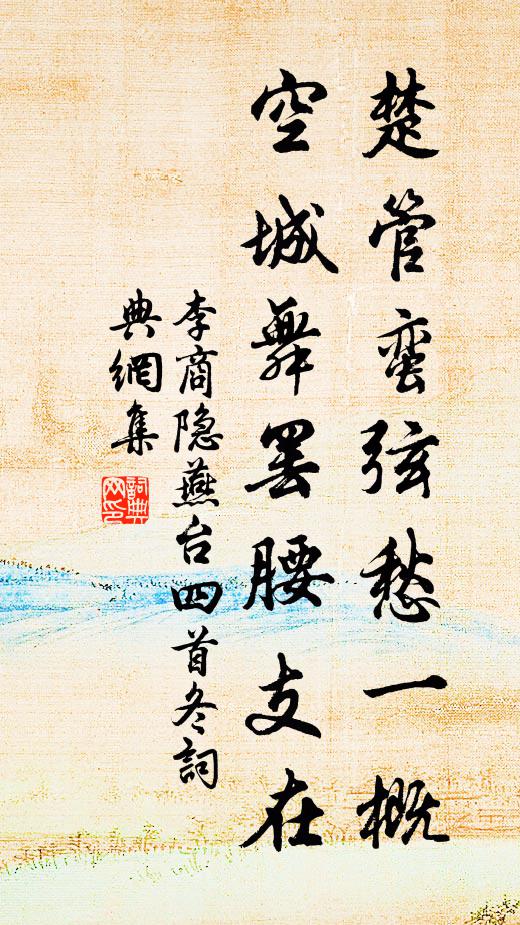 楚管蛮弦愁一概
空城舞罢腰支在
李商隐燕台四首冬詞
典網集
詞典
网印